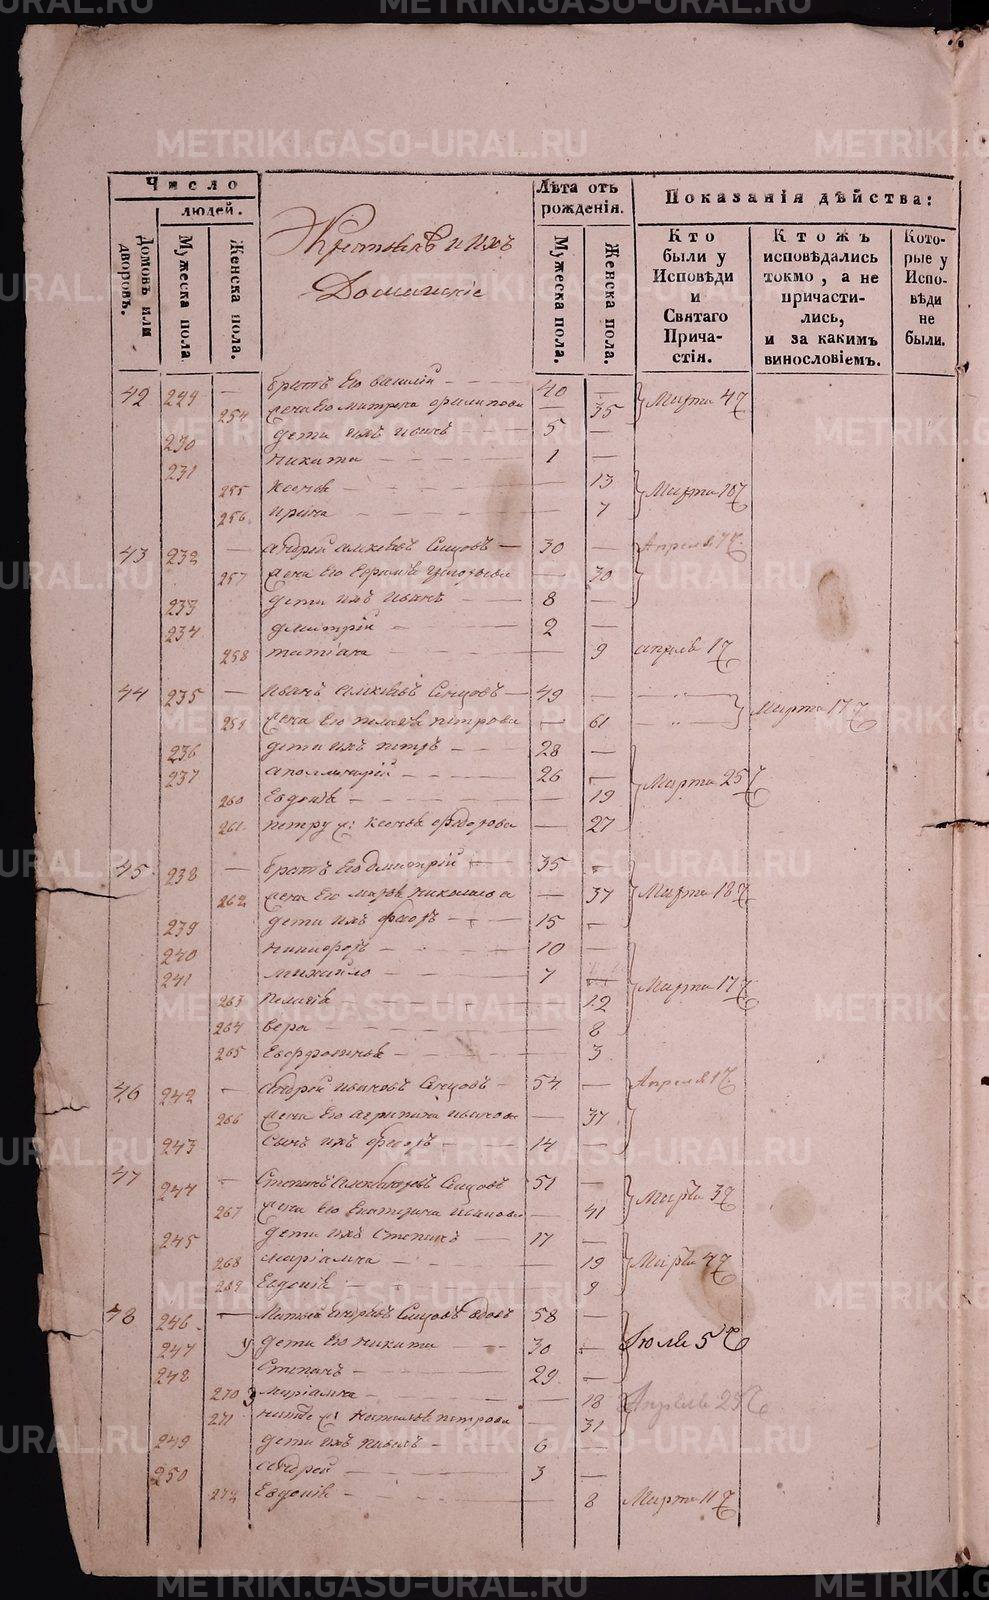 METRIKI.GASO-URAL.RU
Число
людей.
Домовъ или дворовъ.
Мужеска пола.
Женска пола.
Крестьянѣ и ихъ
Домашніе
Лѣта отъ рожденія.
Мужеска пола.
Женска пола.
Показанія дѣйства:
Кто были у Исповѣди и Святаго Прича- стія.
Ктожъ исповѣдались токмо, а не причасти- лись, и за какимъ винословіемъ.
Кото- рые у Испо- вѣди не были.
42 229 — братъ его василій — 40 — Марта 4
254 жена его матрена филипова — 35
230 дети ихъ иванъ — 5 —
231 никита — 1 —
255 — 13 Марта 18
256 ирина — 7
43 232 — андрей Сенцовъ — 30 — Апреля 17
257 жена его — 30
233 дети ихъ иванъ — 8 —
234 дмитрій — 2 —
258 татіана — 9 апреля 17
44 235 — иванъ Сенцовъ — 49 — Марта 17
259 жена его пелагея петрова — 61
236 дети ихъ петръ — 28 —
237 аполинарій — 26 — Марта 25
260 Евдокія — 19
261 петру ж: федорова — 27
45 238 — братъ его Дмитрій — 35 —
262 жена его николаева — 37 Марта 18
239 дети ихъ федоръ — 15 —
240 никифоръ — 10 —
241 михайло — 7 Марта 17
263 пелагія — 12
264 вера — 8
265 Евфросинья — 3
46 242 — андрей ивановъ Сенцовъ — 54 — Апреля 17
266 жена его агрипина иванова — 37
243 сынъ ихъ федоръ — 14 —
47 244 — Степанъ Сенцовъ 51 — Марта 3
267 жена его Екатерина — 41
245 дети ихъ Степанъ — 17 —
268 маріамна — 19 Марта 4
269 Евдокія — 9
48 246 — Сенцовъ вдовъ 58 —
247 дети его никита — 30 — Июля 5
248 Степанъ — 29 —
270 маріамна — 18 Апреля 25
271 ж: наталья петрова — 31
249 дети ихъ — 6 —
250 андрей — 3 —
272 Евдокія — 8 Марта 11